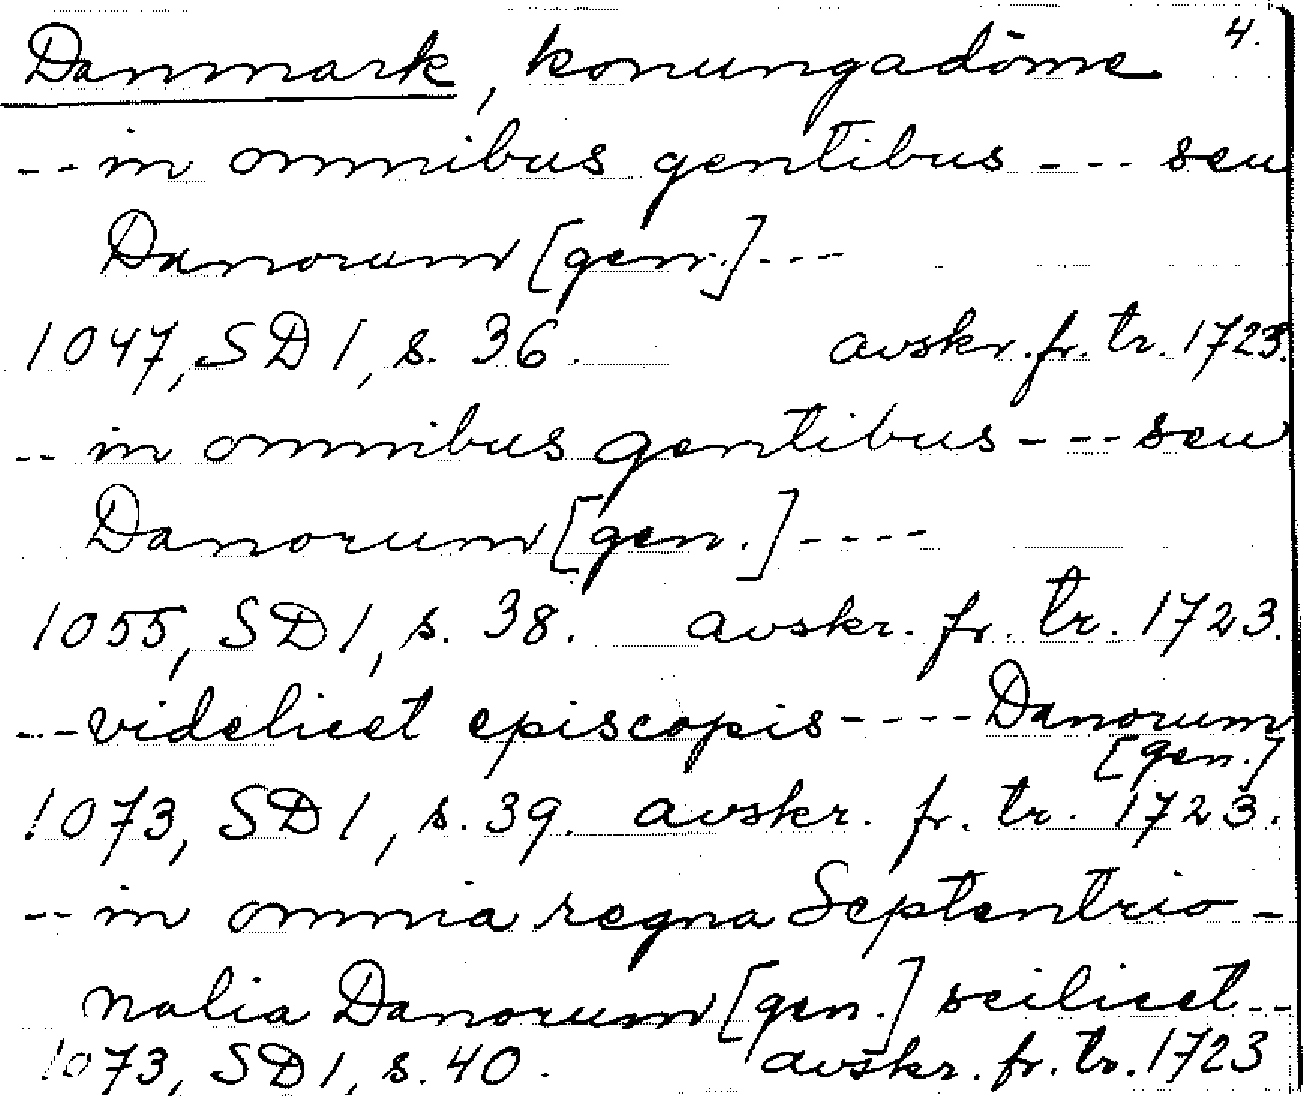 4.
Danmark, konungadöme
-- in omnibus gentibus --- seu
Danorum [gen.] ---
1047, SD 1, s. 36. avskr. fr. tr. 1723.
-- in omnibus gentibus --- seu
Danorum [gen.] ----
1055, SD 1, s. 38. avskr. fr. tr. 1723.
--- videlicet episcopis ---- Danorum
[gen.]
1073, SD 1, s. 39. avskr. fr. tr. 1723.
-- in omnia regna Septentrio-
nalia Danorum [gen.] scilicet --
1073, SD 1, s. 40. avskr. fr. tr. 1723